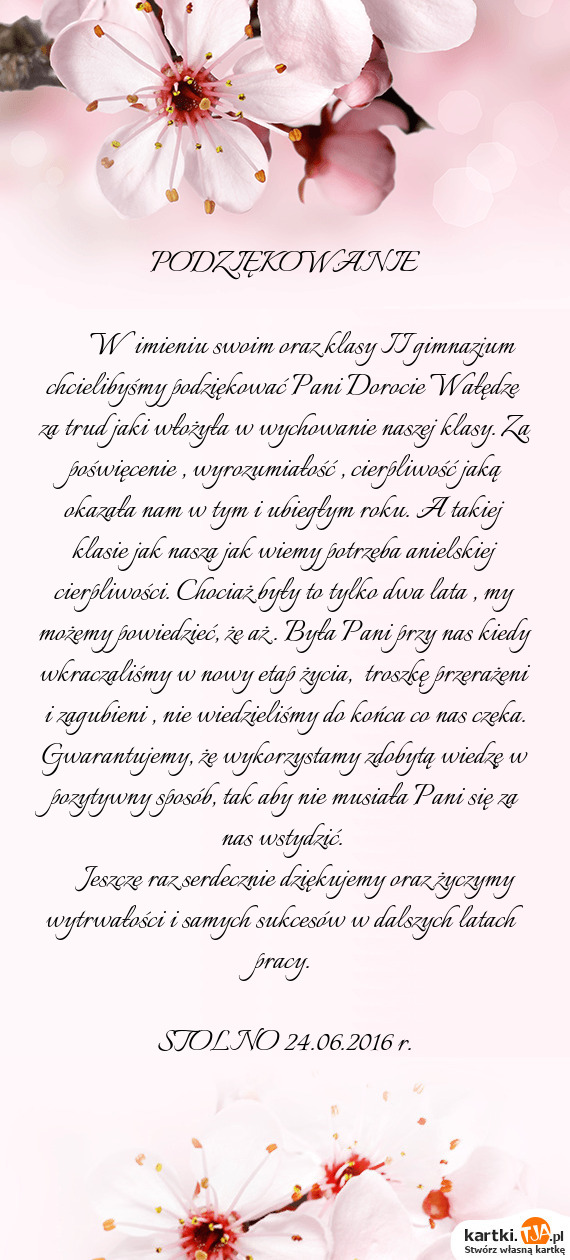 PODZIĘKOWANIE
W imieniu swoim oraz klasy II gimnazjum
chcielibyśmy podziękować Pani Dorocie Wałędze
za trud jaki włożyła w wychowanie naszej klasy. Za
poświęcenie , wyrozumiałość , cierpliwość jaką
okazała nam w tym i ubiegłym roku. A takiej
klasie jak nasza jak wiemy potrzeba anielskiej
cierpliwości. Chociaż były to tylko dwa lata , my
możemy powiedzieć, że aż . Była Pani przy nas kiedy
wkraczaliśmy w nowy etap życia, troszkę przerażeni
i zagubieni , nie wiedzieliśmy do końca co nas czeka.
Gwarantujemy, że wykorzystamy zdobytą wiedzę w
pozytywny sposób, tak aby nie musiała Pani się za
nas wstydzić.
Jeszcze raz serdecznie dziękujemy oraz życzymy
wytrwałości i samych sukcesów w dalszych latach
pracy.
STOLNO 24.06.2016 r.
kartki.TJA.pl
Stwórz własną kartkę